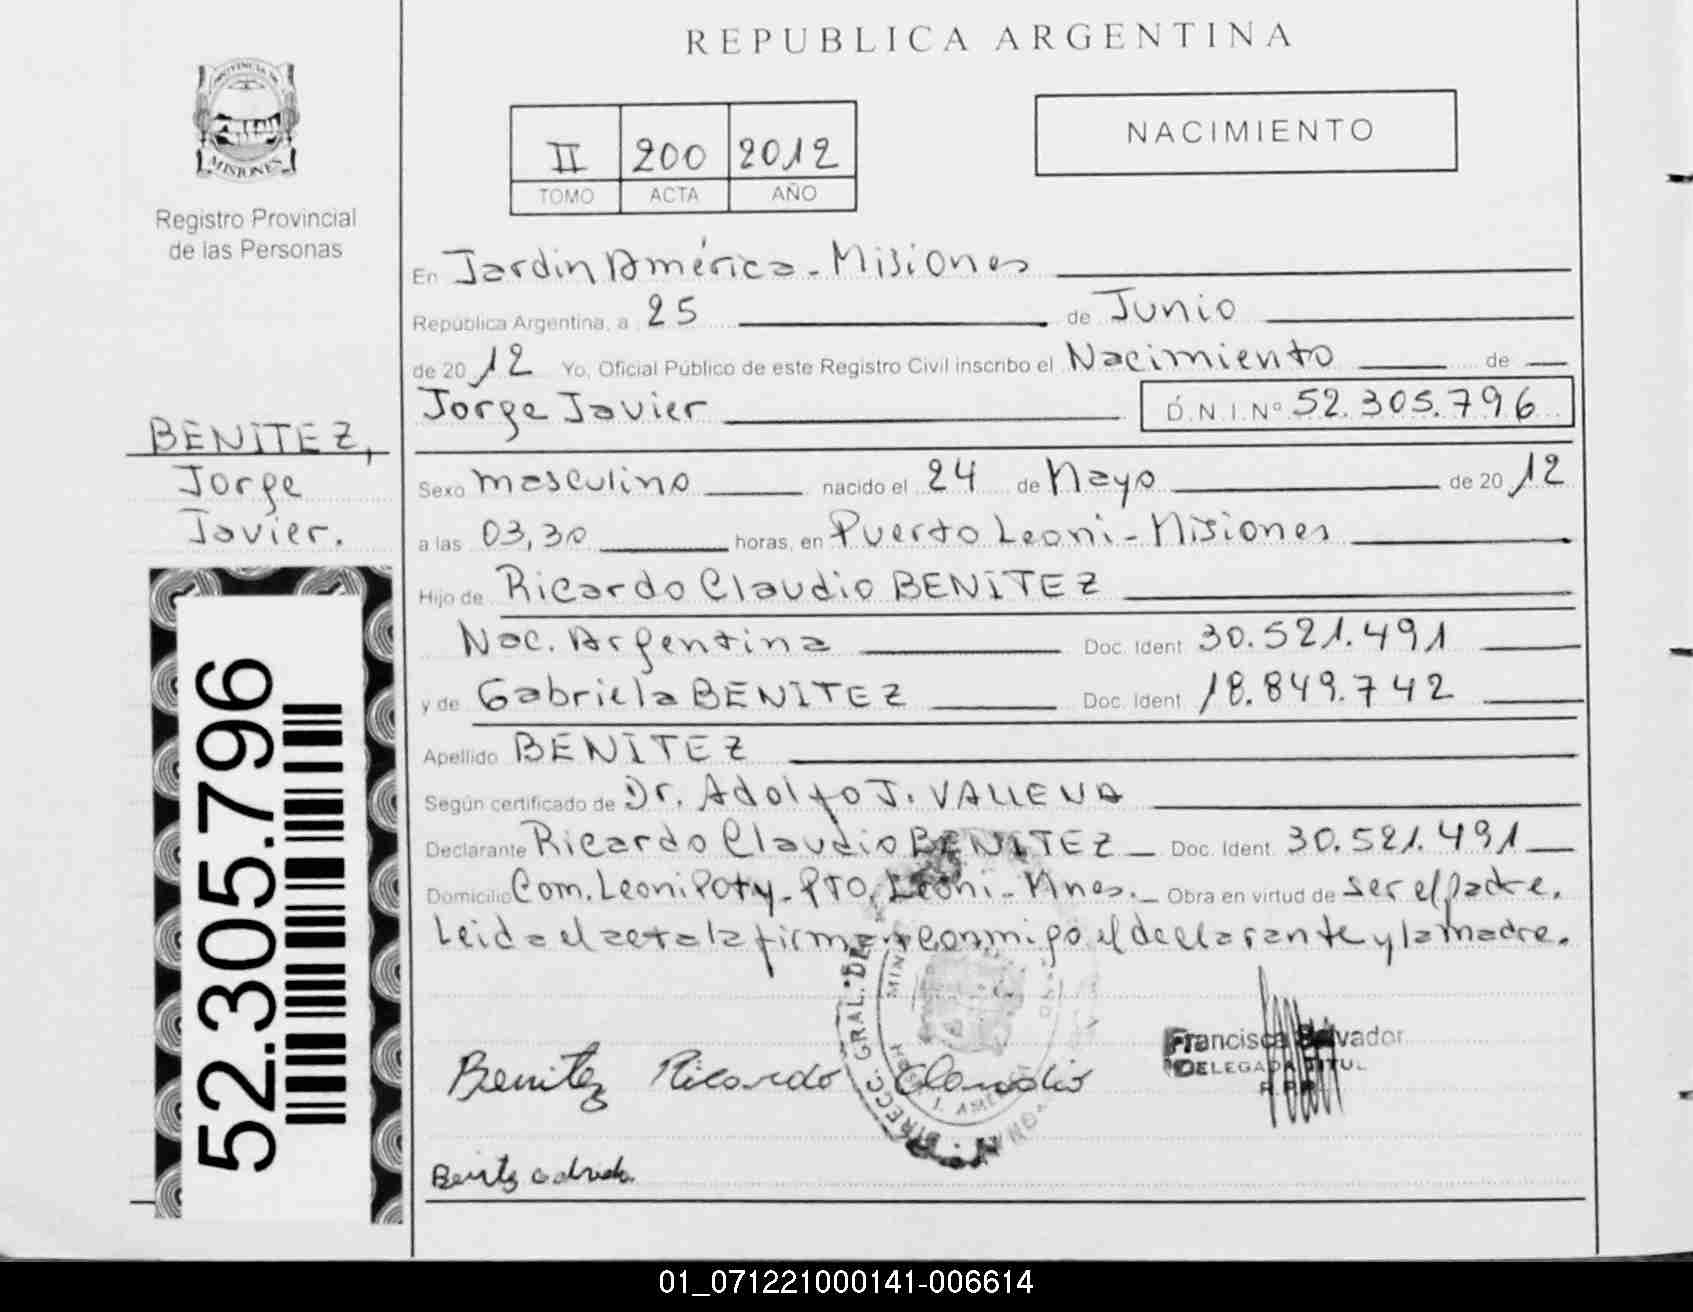 REPUBLICA ARGENTINA
PROVINCIA DE
MISIONES
Registro Provincial
de las Personas
II 200 2012
TOMO ACTA AÑO
NACIMIENTO
En Jardin América - Misiones
República Argentina, a 25 de Junio
de 2012 Yo, Oficial Público de este Registro Civil inscribo el Nacimiento de
Jorge Javier D.N.I.Nº 52.305.796
BENITEZ,
Jorge
Javier.
Sexo masculino nacido el 24 de Mayo de 2012
a las 03,30 horas, en Puerto Leoni - Misiones
Hijo de Ricardo Claudio BENITEZ
Nac. Argentina Doc. Ident. 30.521.491
y de Gabriela BENITEZ Doc. Ident. 18.849.742
Apellido BENITEZ
Según certificado de Dr. Adolfo J. VALLEVA
Declarante Ricardo Claudio BENITEZ Doc. Ident. 30.521.491
Domicilio Com. Leoni Poty - PTO. Leoni - Mnes. Obra en virtud de ser el padre.
Leida el acta la firman conmigo el declarante y la madre.
52.305.796
DIRECC. GRAL. DE
Benitez Ricardo Claudio
Francisca Salvador
DELEGADA TITUL
Benitez
01_071221000141-006614